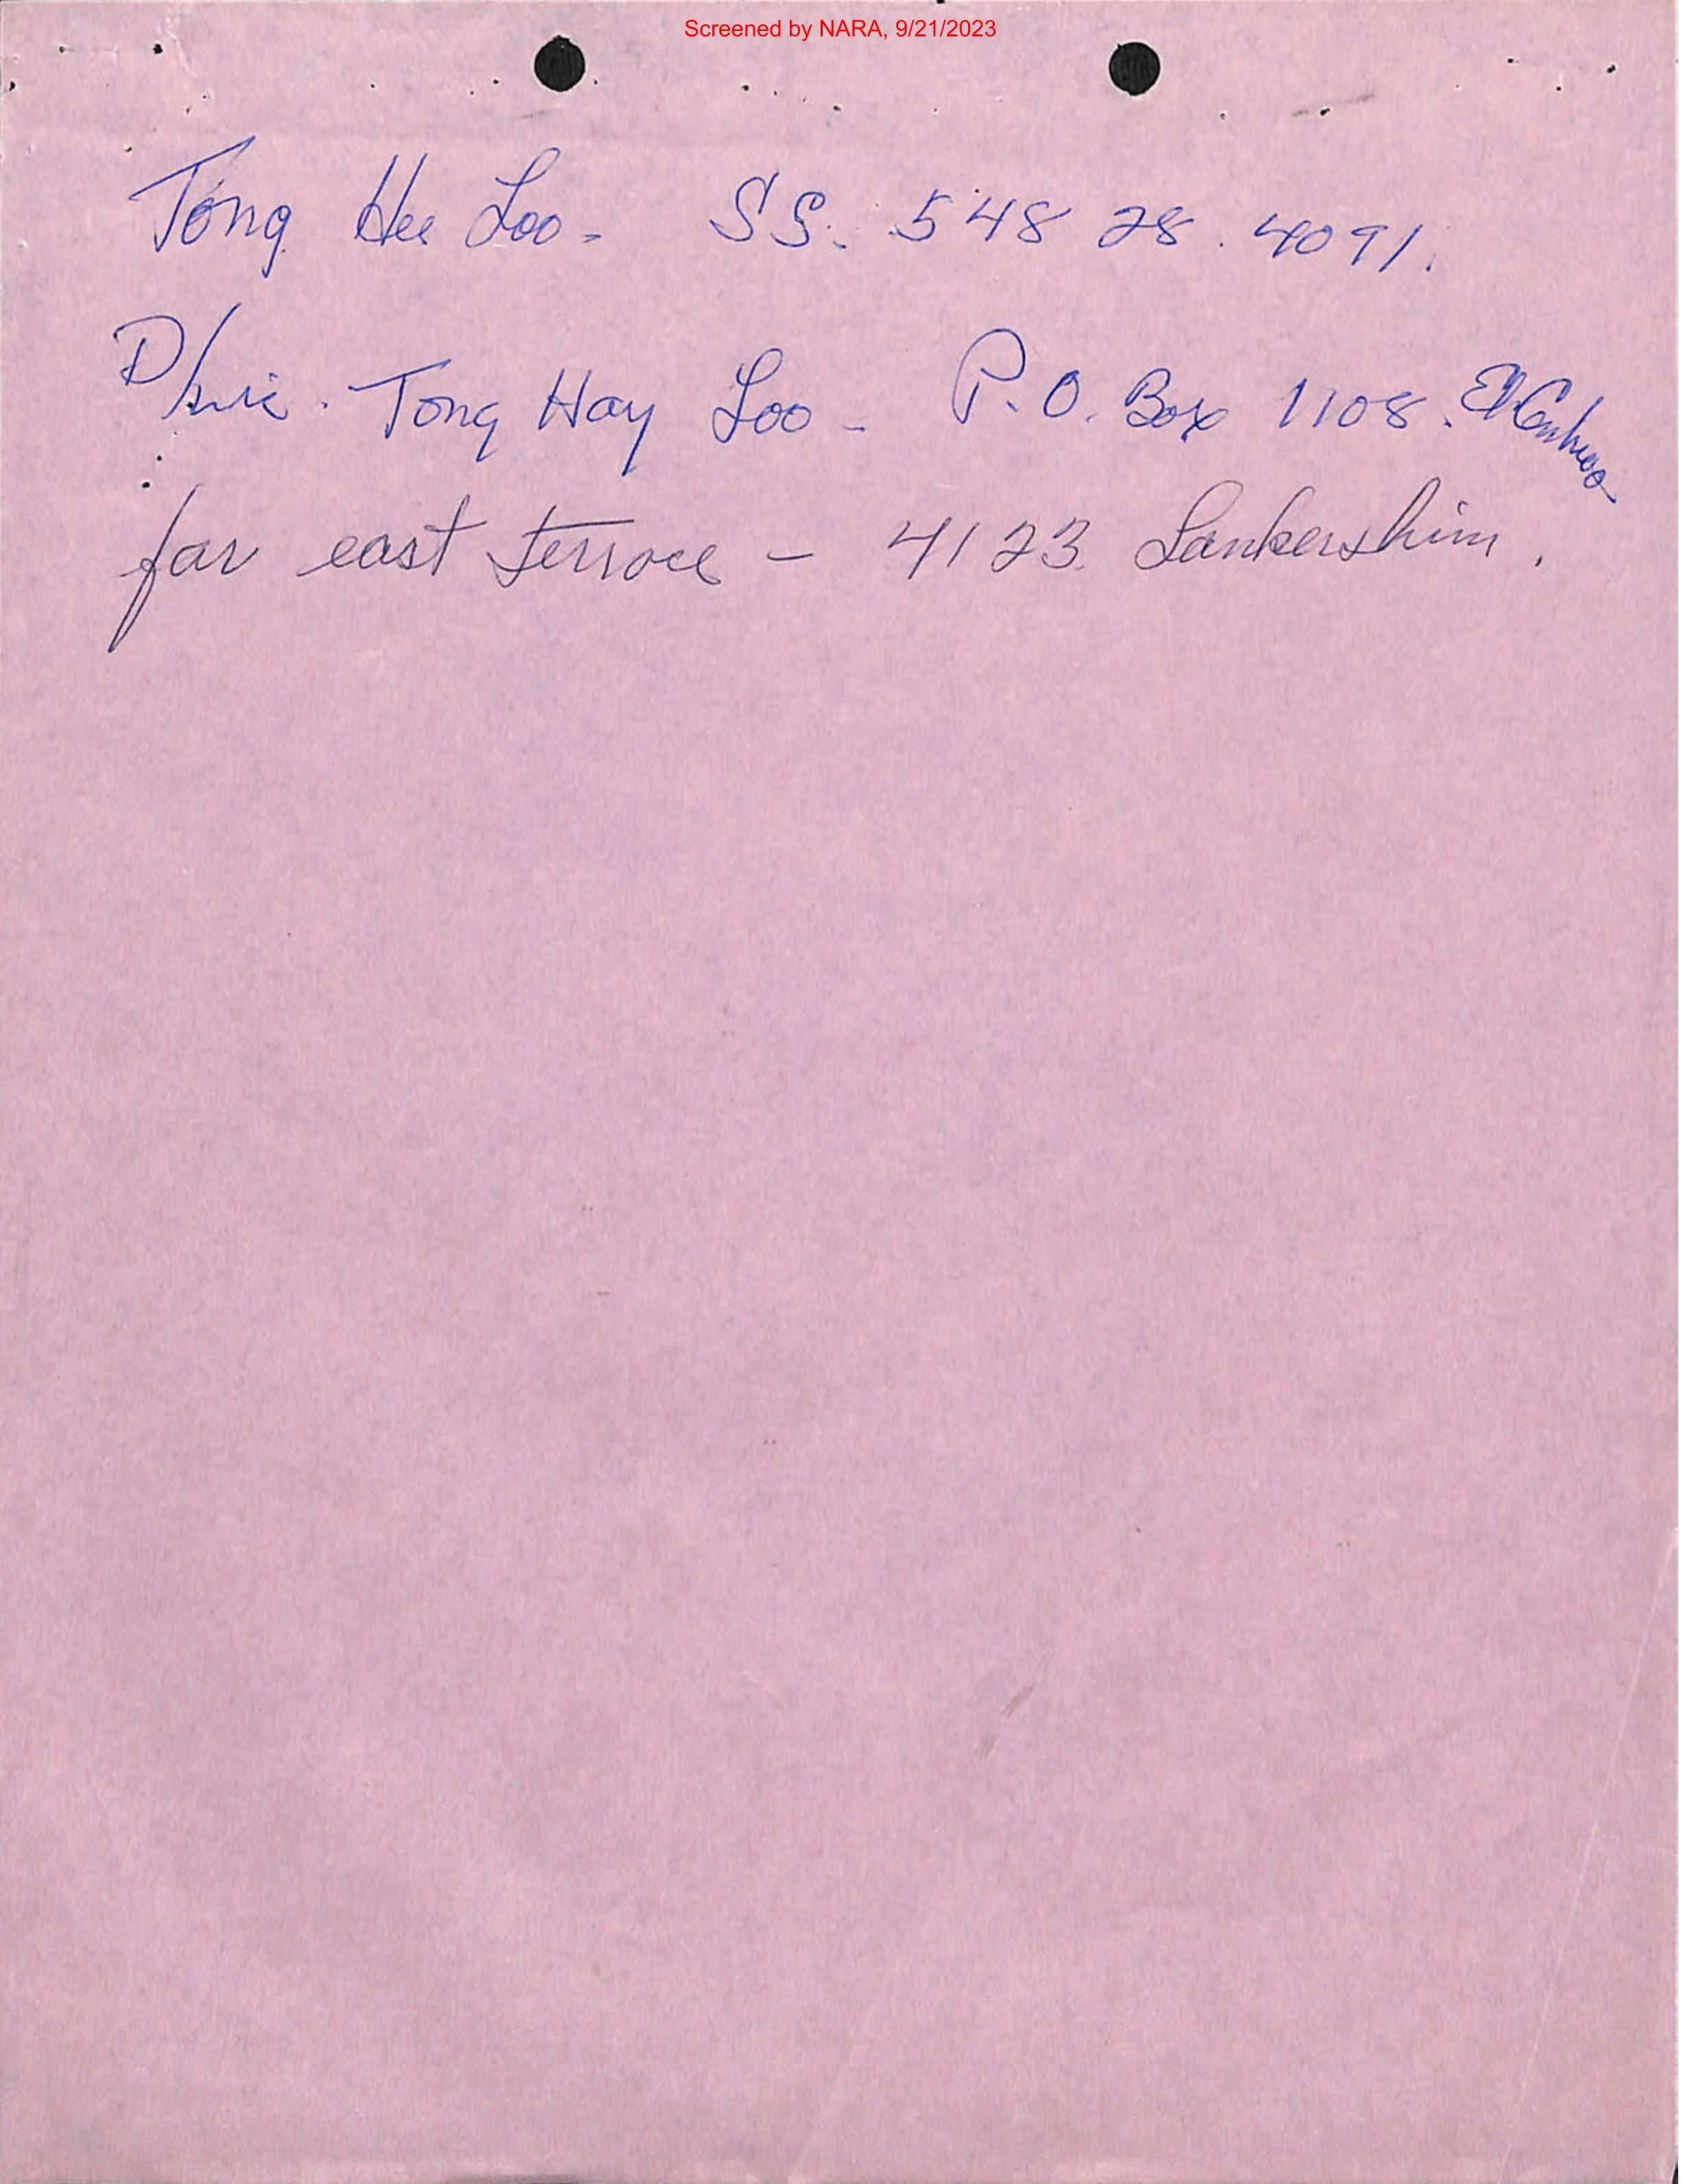 Screened by NARA, 9/21/2023
Tong Hee Loo - SS. 548 28. 4091.
Tong Hay Loo - P.O. Box 1108. El Centro
far east terrace - 4123 Lankershim.